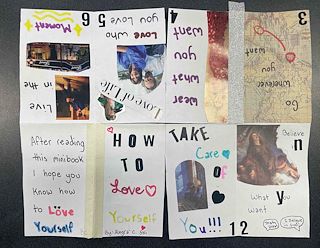 6
Moment
in the
Live
5
Love who
you Love
Love of Life
4
Wear
what
you
want
3
Go
Wherever
you
Want
After reading
this minibook
I hope you
know how
to Love
Yourself
HOW
TO
Love
Yourself
TAKE
Care
OF
You!!!
1
Believe
in
What you
Want
2